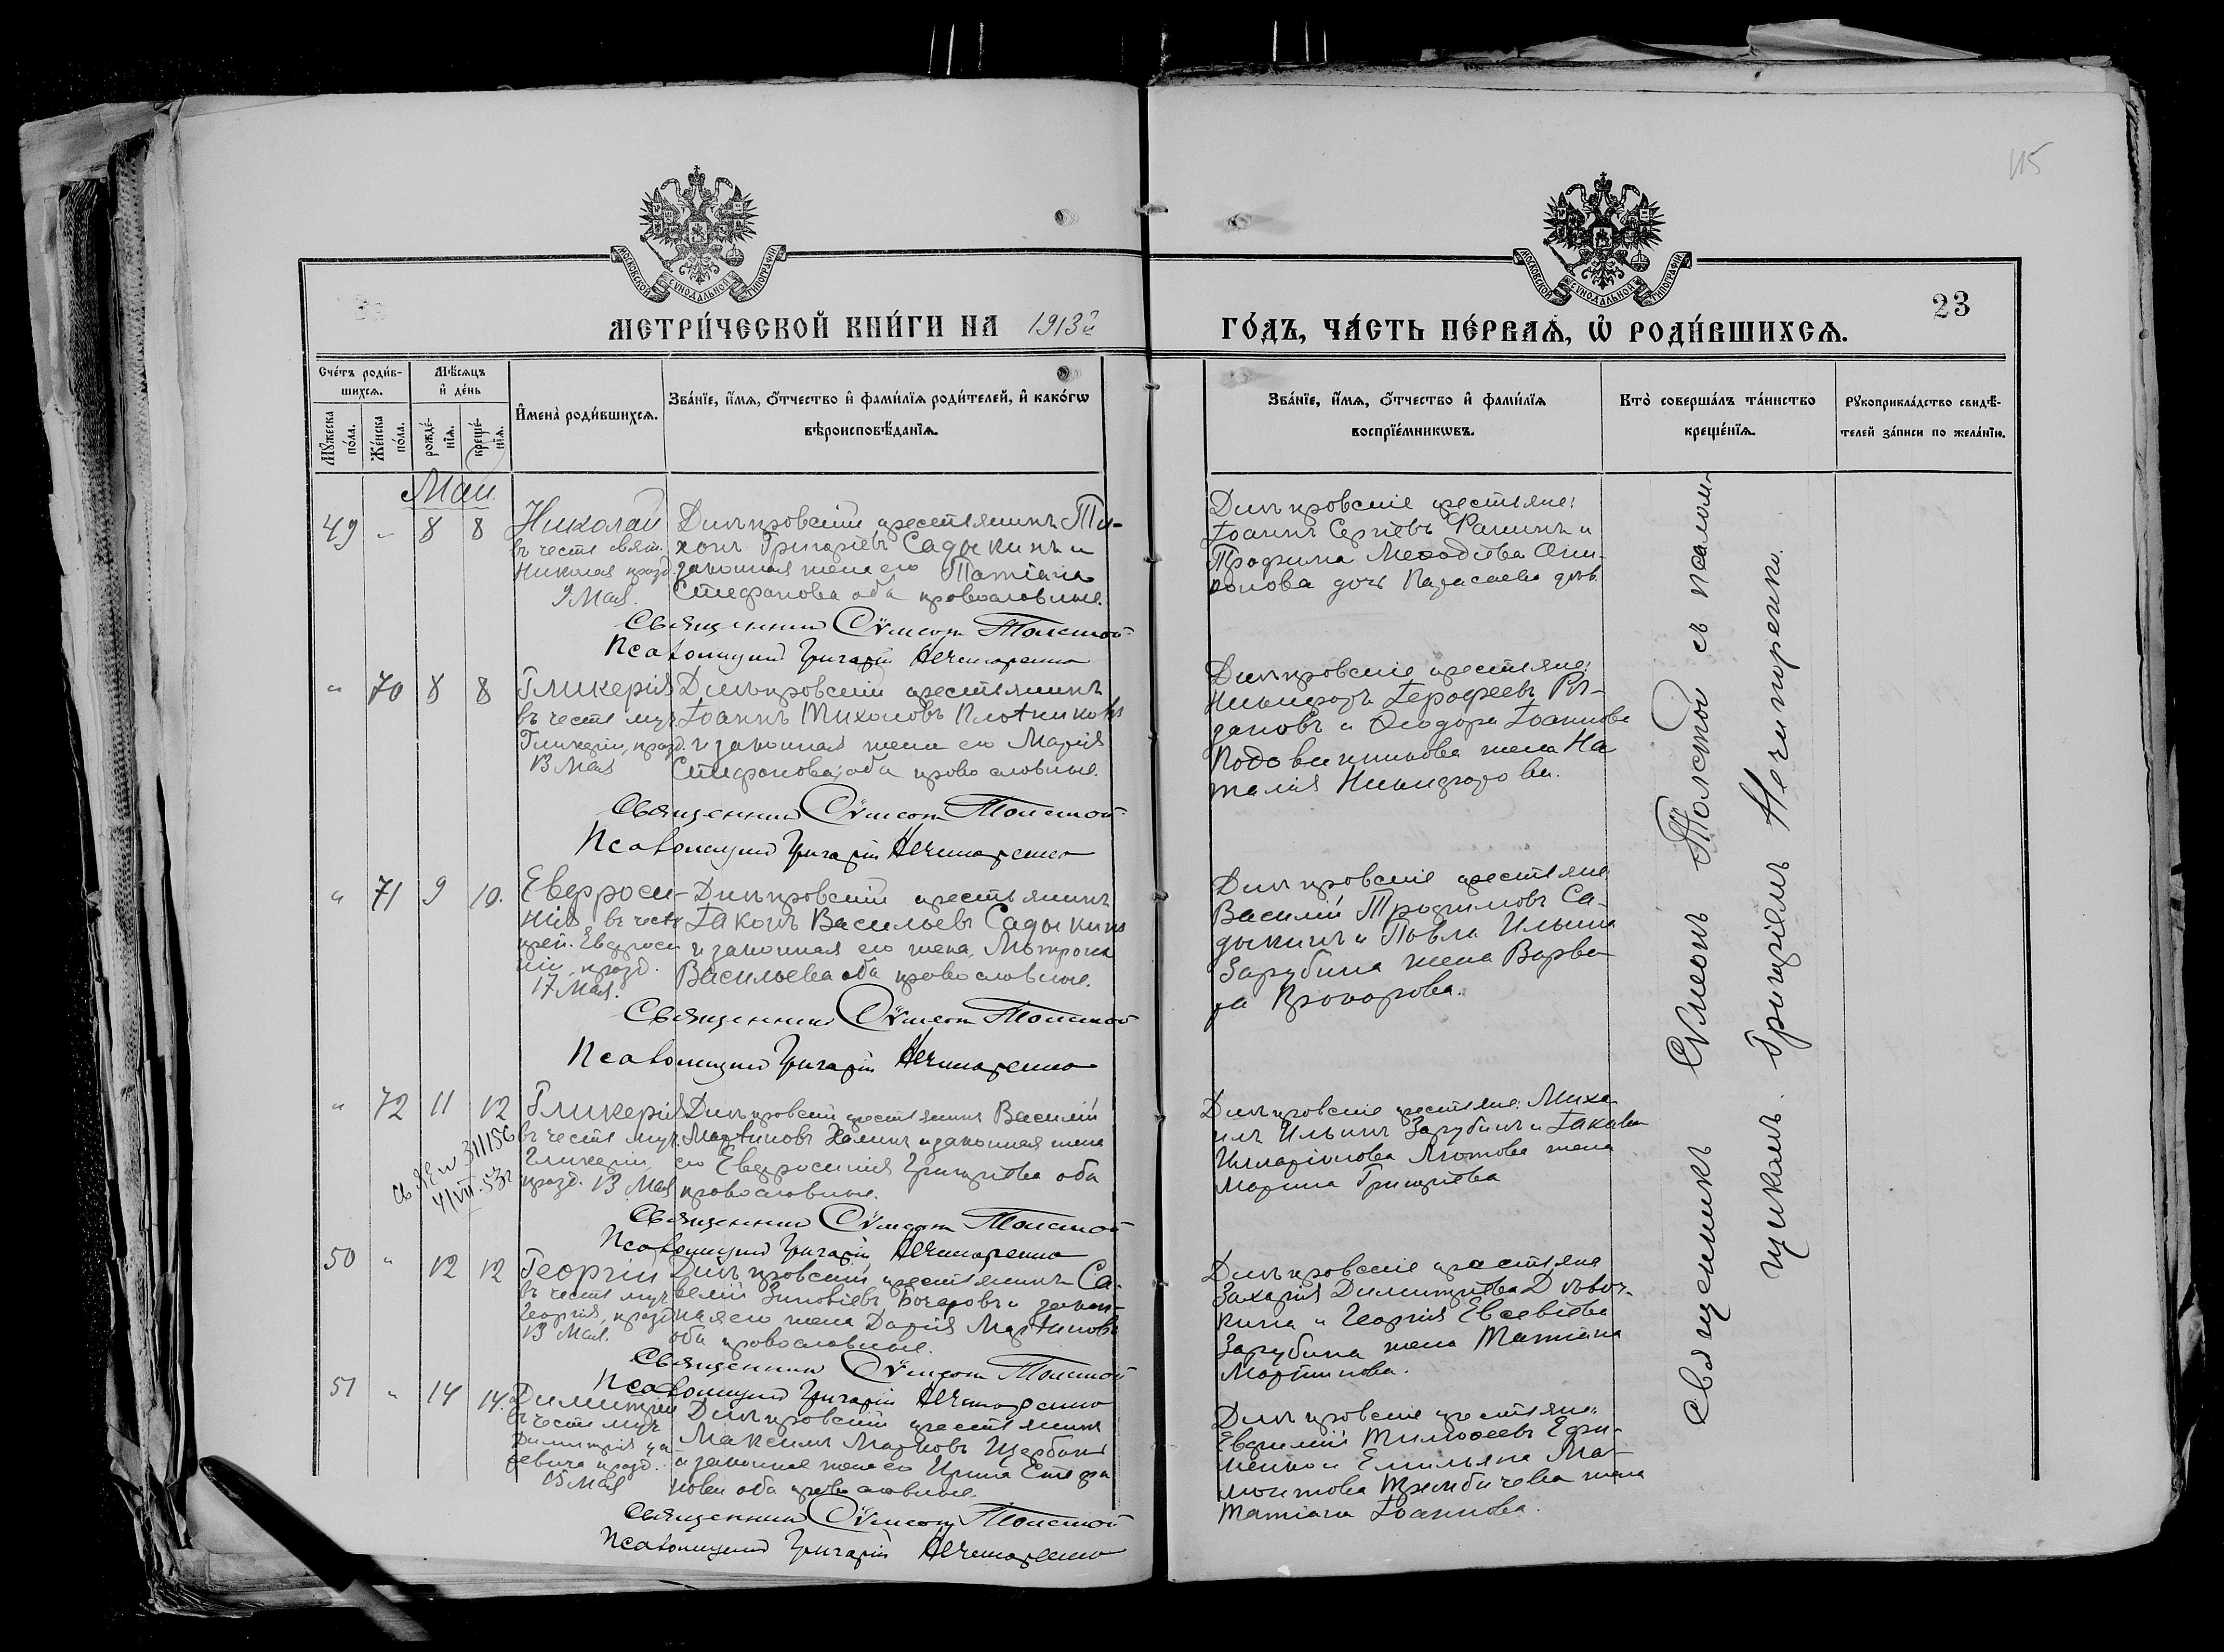 115
МОСКОВСКОЙ СѴНОДАЛЬНОЙ ТИПОГРАФІИ
МОСКОВСКОЙ СѴНОДАЛЬНОЙ ТИПОГРАФІИ
23
МЕТРИ́ЧЕСКОЙ КНИ́ГИ НА 1913й
ГО́ДЪ, ЧА́СТЬ ПЕ́РВАѦ, Ѡ҆ РОДИ́ВШИХСѦ.
Сче́тъ роди́в-
шихсѧ.
Мѣ́сѧцъ
и҆ де́нь
Мꙋ́жеска по́ла.
Же́нска по́ла.
рожде́-нїѧ.
креще́-нїѧ.
И҆мена̀ роди́вшихсѧ.
Зва́нїе, и҆́мѧ, ѻ҆́тчество и҆ фами́лїѧ роди́телей, и҆ како́гѡ
вѣроисповѣ́данїѧ.
Зва́нїе, и҆́мѧ, ѻ҆́тчество и҆ фами́лїѧ
воспрїе́мникѡвъ.
Кто̀ соверша́лъ та́инство
креще́нїѧ.
Рꙋкоприкла́дство свидѣ́-
телей за́писи по жела́нїю.
Май
49 - 8 8
Николай
въ честь свят.
Николая празд.
9 Мая.
Днѣпровскій крестьянинъ Ти-
хонъ Григоріевъ Садыкинъ и
законная жена его Татіана
Стефанова оба православные.
Священникъ Сѵмеонъ Толстой
Псаломщикъ Григорій Нечипоренко
Днѣпровскіе крестьяне:
Іоаннъ Сергіевъ Фанинъ и
Трофима Меѳодіева
дочь
" 70 8 8
Гликерія
въ честь муч.
Гликеріи, празд.
13 Мая
Днѣпровскій крестьянинъ
Іоаннъ Тихоновъ Плотниковъ
и законная жена его Марія
Стефанова, оба православные.
Священникъ Сѵмеонъ Толстой
Псаломщикъ Григорій Нечипоренко
Днѣпровскіе крестьяне:
Никифоръ Іерофеевъ Ры-
даковъ и Ѳеодора Іоаннова
жена На
талія Никифорова.
" 71 9 10.
Евфроси-
нія въ честь
преп. Евфроси
ніи, празд.
17 Мая.
Днѣпровскій крестьянинъ
Іаковъ Васильевъ Садыкинъ
и законная его жена, Матрона
Васильева оба православные.
Священникъ Сѵмеонъ Толстой
Псаломщикъ Григорій Нечипоренко
Днѣпровскіе крестьяне
Василій Трофимовъ Са-
дыкинъ и Павла Ильина
Зарубина жена Варва
ра Прохорова.
" 72 11 12
Гликерія
въ честь муч.
Гликеріи
празд. 13 Мая
Днѣпровскій крестьянинъ Василій
Мартиновъ Халинъ и законная жена
его Евфросинія Григоріева оба
православные.
311156
4/VII-53г
Священникъ Сѵмеонъ Толстой
Псаломщикъ Григорій Нечипоренко
Днѣпровскіе крестьяне: Миха
илъ Ильинъ Зарубинъ и Іакова
Илларіонова Лютова жена
Марина Григоріева
50 " 12 12
Георгій
въ честь муч
Георгія, празд
13 Мая.
Днѣпровскій крестьянинъ Са-
велій Зиновіевъ Бочаровъ и закон-
ная его жена Дарія Мартинова
оба православные.
Священникъ Сѵмеонъ Толстой
Псаломщикъ Григорій Нечипоренко
Днѣпровскіе крестьяне
Захарія Димитріева
и Георгія Евсевіева
Зарубина жена Татіана
Мартинова.
51 " 14 14.
Димитрій
въ честь муч
Димитрія ца-
ревича празд.
15 Мая
Днѣпровскій крестьянинъ
Максимъ Марковъ Щербакъ
и законная жена его Ирина Стефа
нова оба православные.
Священникъ Сѵмеонъ Толстой
Псаломщикъ Григорій Нечипоренко
Днѣпровскіе крестьяне:
Евфимій Тимоѳеевъ Ефи-
менко и Емильяна Ма-
жена
Татіана Іоаннова.
Священникъ Сѵмеонъ Толстой съ псалом-
щикомъ Григоріемъ Нечипоренко.